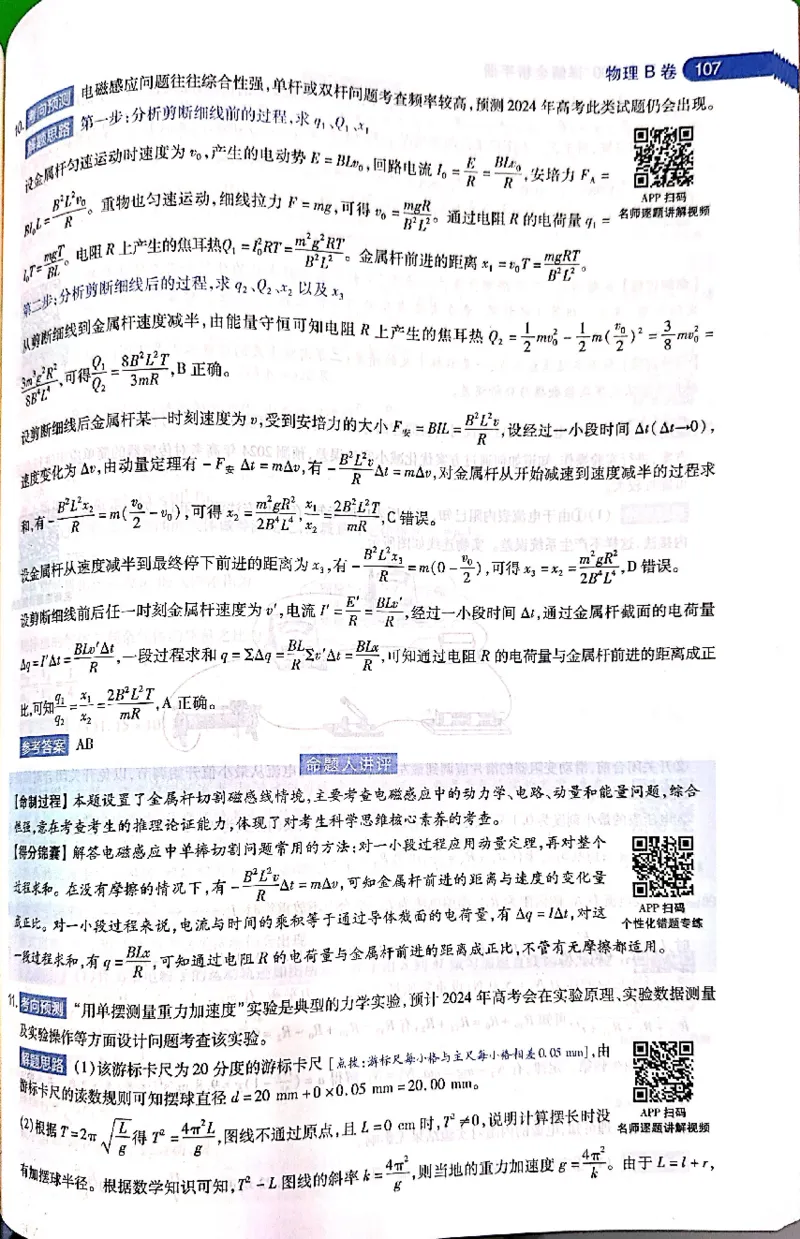 物理 B 卷 107
10. 考向预测 电磁感应问题往往综合性强,单杆或双杆问题考查频率较高,预测 2024 年高考此类试题仍会出现。
解题思路 第一步:分析剪断细线前的过程,求 q₁、Q₁、x₁
设金属杆匀速运动时速度为 v₀,产生的电动势 E = BLv₀,回路电流 I₀ = E/R = BLv₀/R,安培力 F_A =
BI₀L = B²L²v₀/R。重物也匀速运动,细线拉力 F = mg,可得 v₀ = mgR/B²L²。通过电阻 R 的电荷量 q₁ =
APP 扫码
名师逐题讲解视频
I₀T = mgT/BL。电阻 R 上产生的焦耳热Q₁ = I₀²RT = m²g²RT/B²L²。金属杆前进的距离 x₁ = v₀T = mgRT/B²L²。
第二步:分析剪断细线后的过程,求 q₂、Q₂、x₂ 以及 x₃
从剪断细线到金属杆速度减半,由能量守恒可知电阻 R 上产生的焦耳热 Q₂ = 1/2 mv₀² - 1/2 m(v₀/2)² = 3/8 mv₀² =
3m³g²R²/8B⁴L⁴,可得 Q₁/Q₂ = 8B²L²T/3mR,B 正确。
设剪断细线后金属杆某一时刻速度为 v,受到安培力的大小 F安 = BIL = B²L²v/R,设经过一小段时间 Δt(Δt→0),
速度变化为 Δv,由动量定理有 - F安 Δt = mΔv,有 - B²L²v/R Δt = mΔv,对金属杆从开始减速到速度减半的过程求
和,有 - B²L²x₂/R = m(v₀/2 - v₀),可得 x₂ = m²gR²/2B⁴L⁴,x₁/x₂ = 2B²L²T/mR,C 错误。
设金属杆从速度减半到最终停下前进的距离为 x₃,有 - B²L²x₃/R = m(0 - v₀/2),可得 x₃ = x₂ = m²gR²/2B⁴L⁴,D 错误。
设剪断细线前后任一时刻金属杆速度为 v′,电流 I′ = E′/R = BLv′/R,经过一小段时间 Δt,通过金属杆截面的电荷量
Δq = I′Δt = BLv′Δt/R,一段过程求和 q = ΣΔq = BL/R Σv′Δt = BLx/R,可知通过电阻 R 的电荷量与金属杆前进的距离成正
比,可知 q₁/q₂ = x₁/x₂ = 2B²L²T/mR,A 正确。
参考答案 AB
命题人讲评
【命制过程】本题设置了金属杆切割磁感线情境,主要考查电磁感应中的动力学、电路、动量和能量问题,综合
性强,意在考查考生的推理论证能力,体现了对考生科学思维核心素养的考查。
【得分锦囊】解答电磁感应中单棒切割问题常用的方法:对一小段过程应用动量定理,再对整个
过程求和。在没有摩擦的情况下,有 - B²L²v/R Δt = mΔv,可知金属杆前进的距离与速度的变化量
成正比。对一小段过程来说,电流与时间的乘积等于通过导体截面的电荷量,有 Δq = IΔt,对这
APP 扫码
个性化错题专练
一段过程求和,有 q = BLx/R,可知通过电阻 R 的电荷量与金属杆前进的距离成正比,不管有无摩擦都适用。
11. 考向预测 “用单摆测量重力加速度”实验是典型的力学实验,预计 2024 年高考会在实验原理、实验数据测量
及实验操作等方面设计问题考查该实验。
解题思路 (1)该游标卡尺为 20 分度的游标卡尺[点拨:游标尺每小格与主尺每小格相差 0.05 mm],由
游标卡尺的读数规则可知摆球直径 d = 20 mm + 0 × 0.05 mm = 20.00 mm。
(2)根据 T = 2π√(L/g) 得 T² = 4π²L/g,图线不通过原点,且 L = 0 cm 时,T² ≠ 0,说明计算摆长时没
APP 扫码
名师逐题讲解视频
有加摆球半径。根据数学知识可知,T² - L 图线的斜率 k = 4π²/g,则当地的重力加速度 g = 4π²/k。由于 L = l + r,